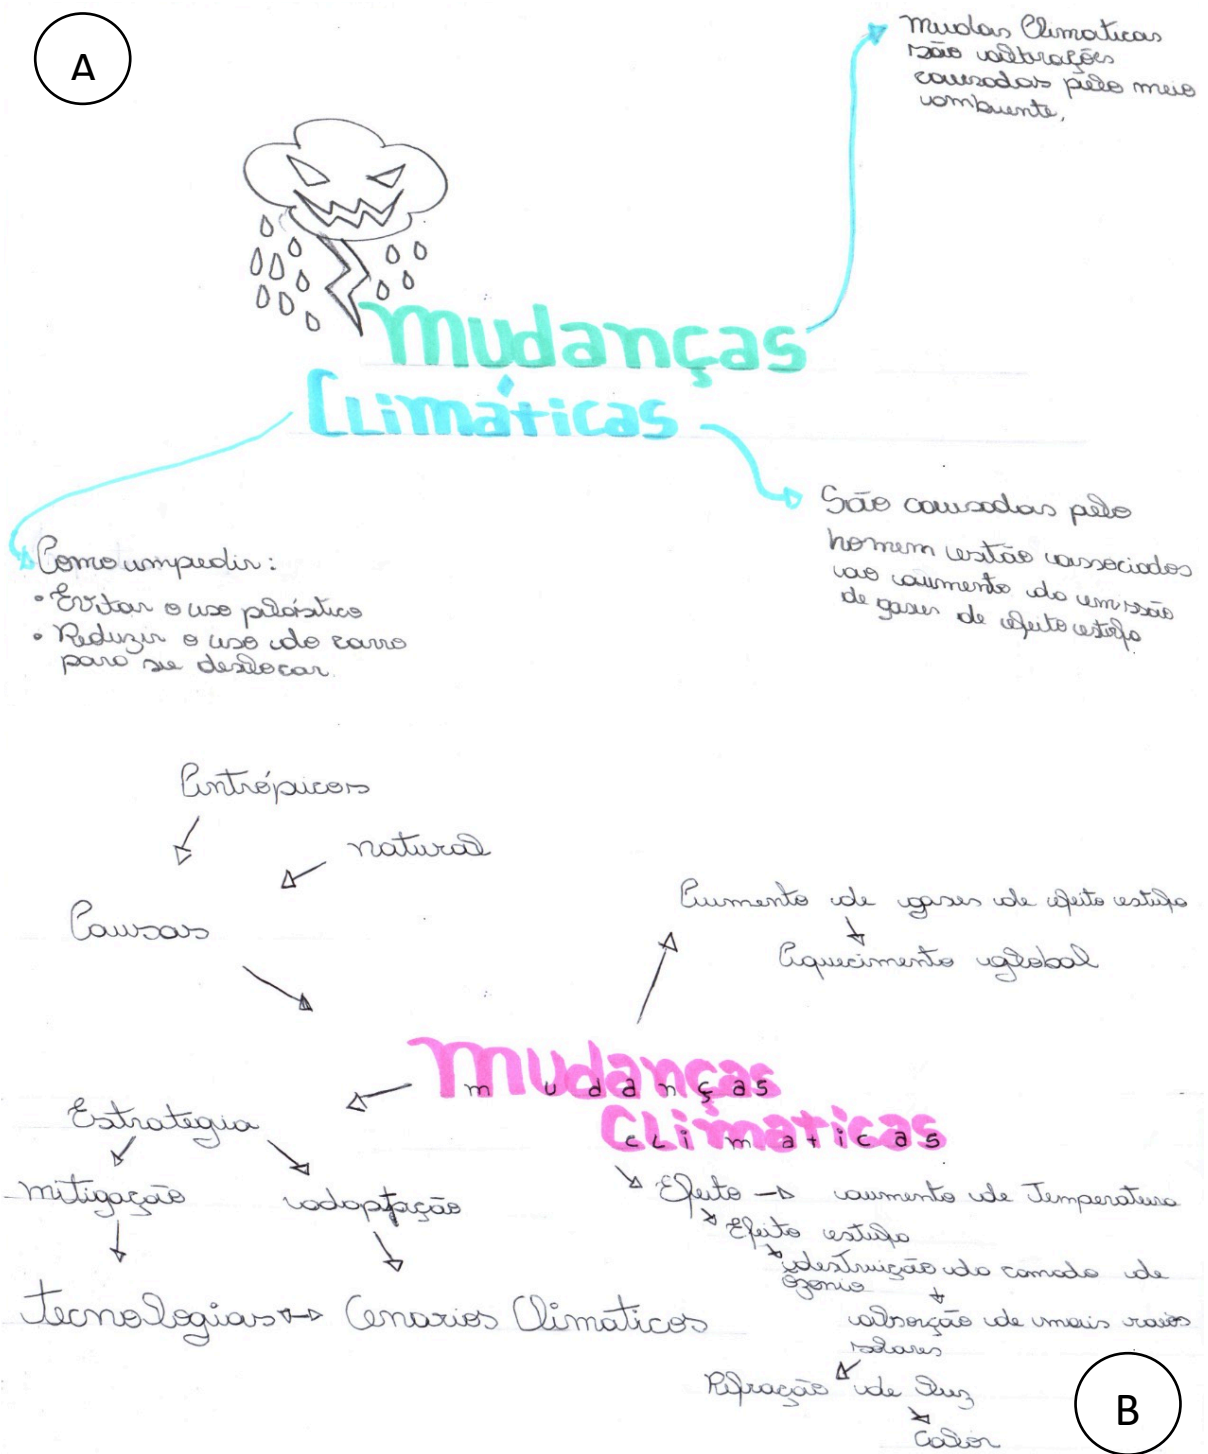 A
Mudas Climaticas
são alterações
causadas pelo meio
ambiente.
Mudanças
Climáticas
São causadas pelo
homem estão associados
ao aumento da emissão
de gases de efeito estufa
Como impedir:
• Evitar o uso plástico
• Reduzir o uso do carro
para se deslocar.
Antrópicos
natural
Causas
Aumento de gases de efeito estufa
Aquecimento global
Mudanças
mudanças
Climaticas
climaticas
Estrategia
mitigação
adaptação
tecnologias
Cenarios Climaticos
Efeito
aumento de Temperatura
Efeito estufa
destruição da camada de
ozonio
absorção de mais raios
solares
Refração de luz
Calor
B